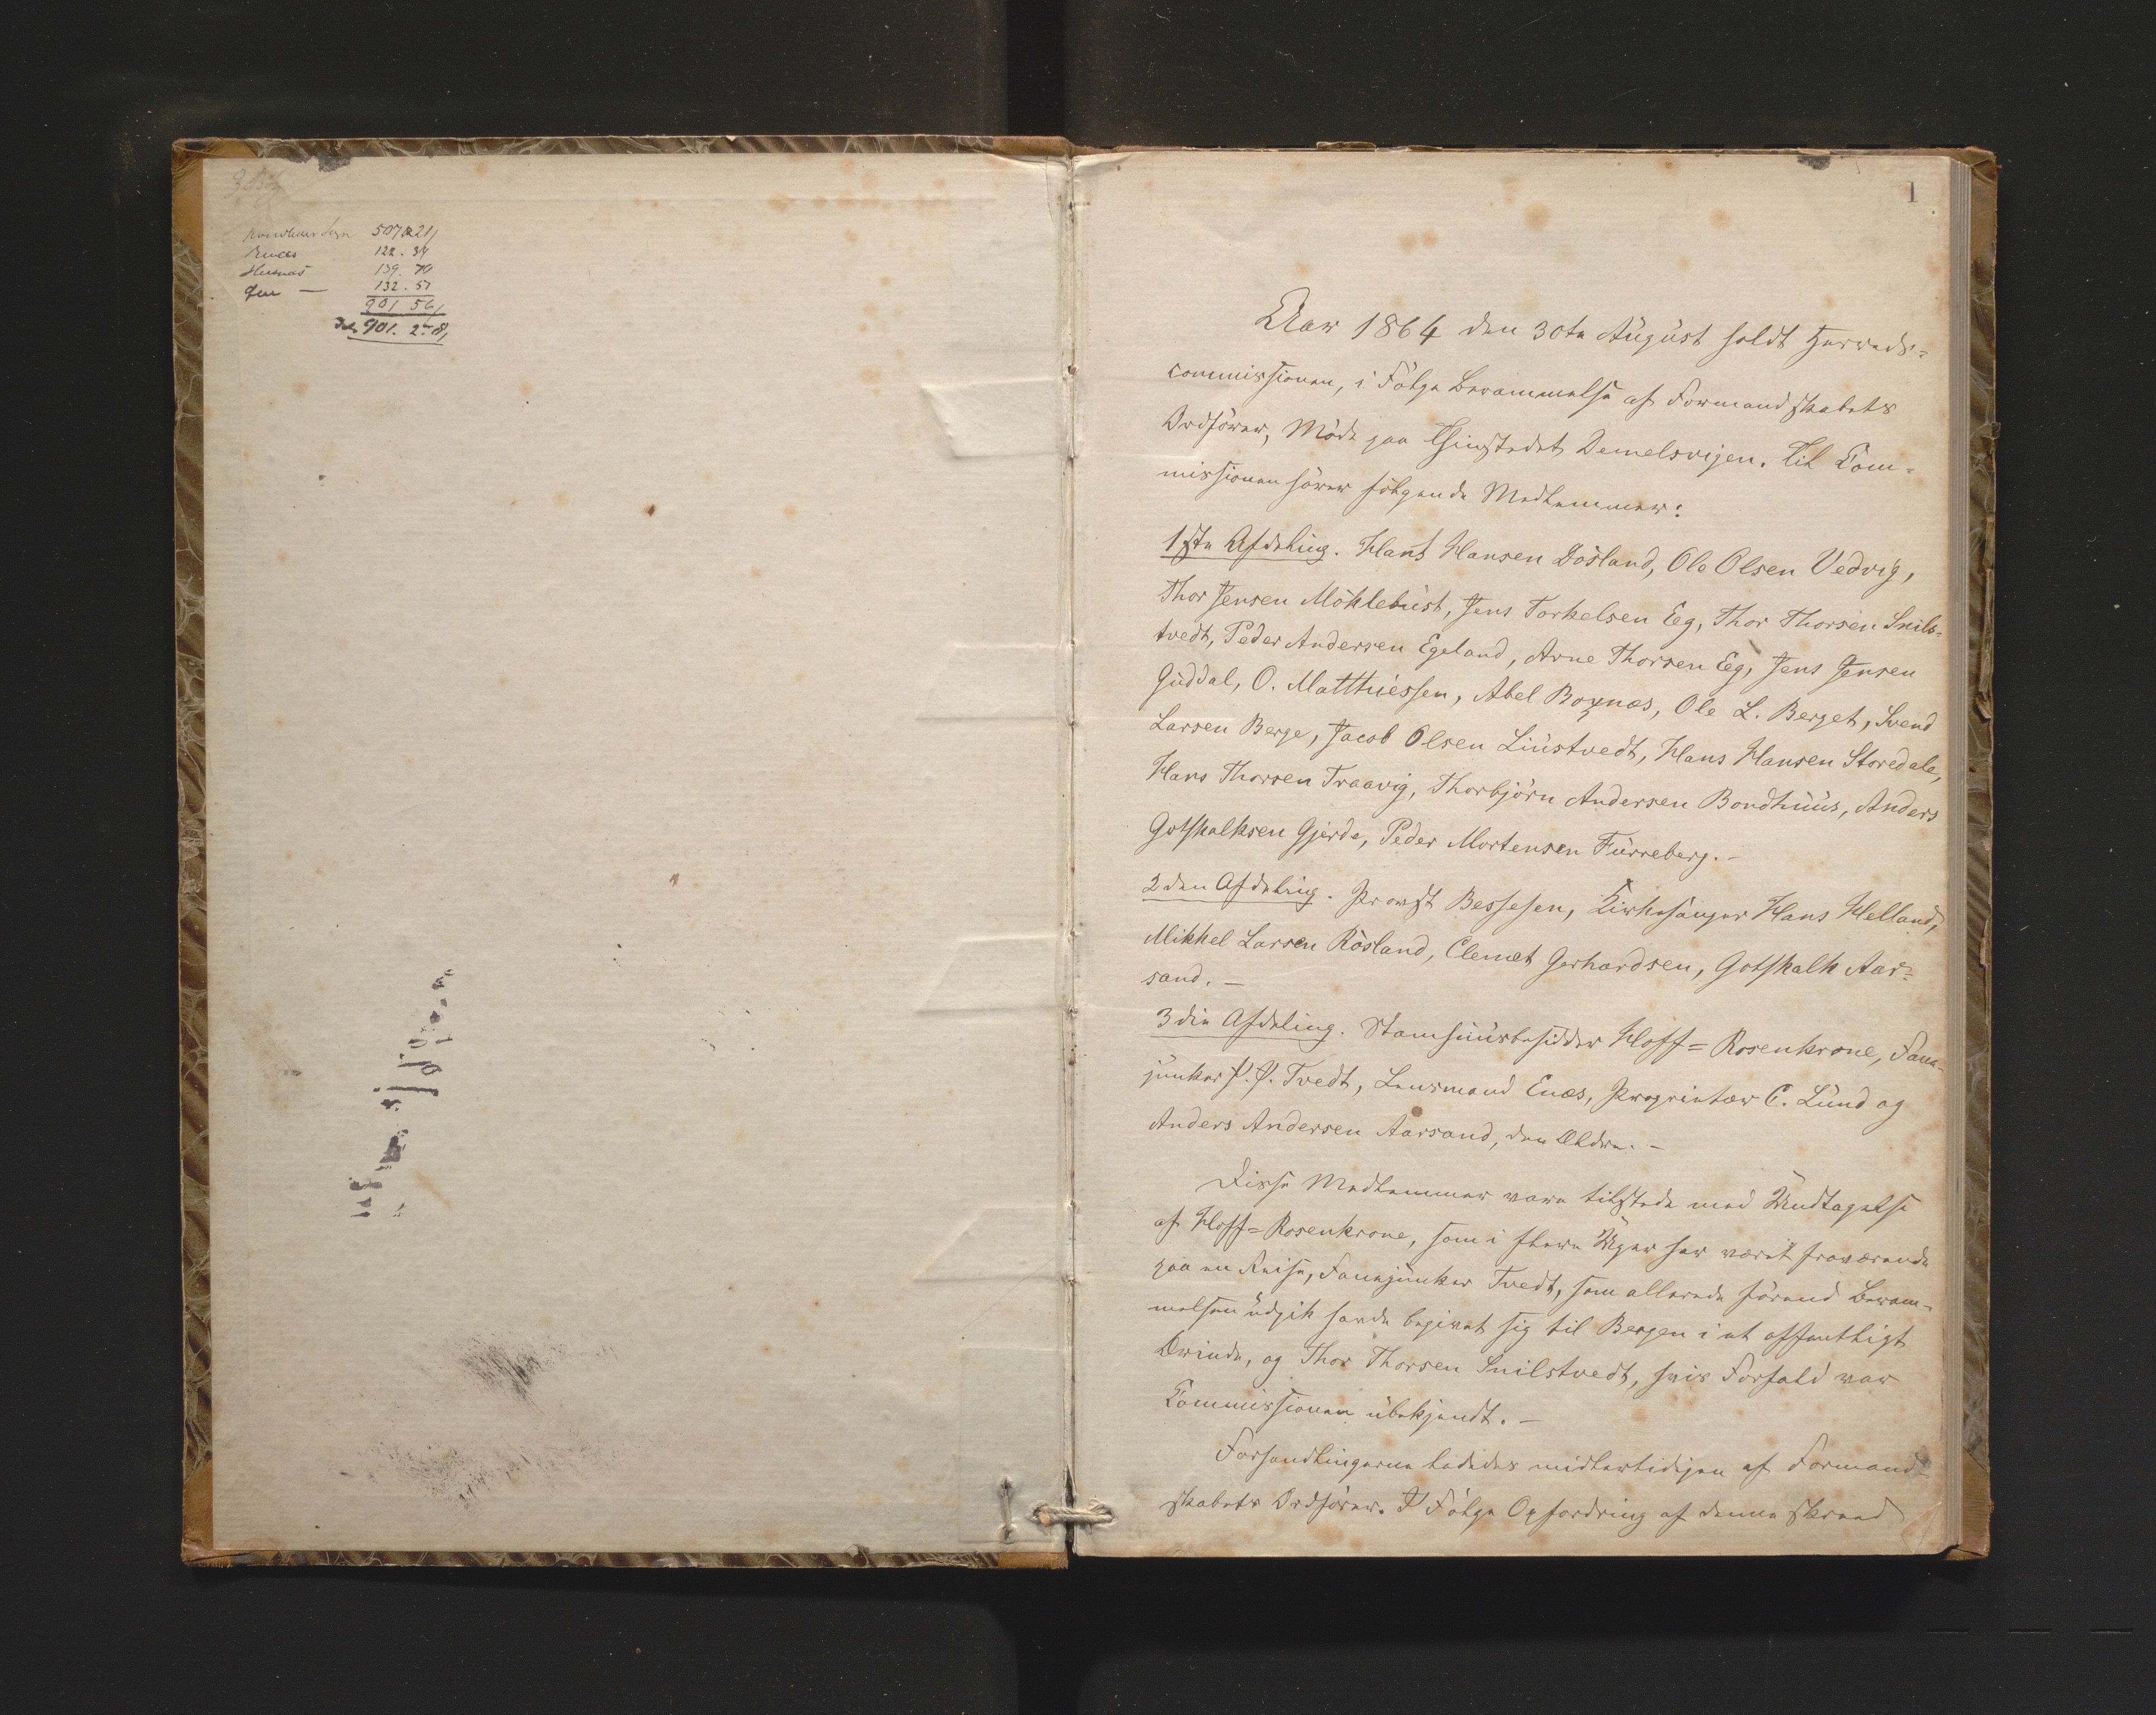 507 21
Enæs 122. 34
Husnæs 139. 70
132. 51
901 56
901. 2
1
Aar 1864 den 30te August holdt Herreds-
commissionen, i Følge Berammelse af Formandskabets
Ordfører, Møde paa Thingstedet Demelsvigen. Til Com-
missionen hører følgende Medlemmer:
1ste Afdeling. Hans Hansen Døsland, Ole Olsen Vedvig,
Thor Jensen Möklebust, Jens Torkelsen Eeg, Thor Thorsen Snils-
tvedt, Peder Andersen Egeland, Arne Thorsen Eeg, Jens Jensen
Guddal, O. Matthiessen, Abel Roxnæs, Ole L. Berget, Svend
Larsen Berge, Jacob Olsen Liustvedt, Hans Hansen Storedale,
Hans Thorsen Traavig, Thorbjörn Andersen Bondhuus, Anders
Gotskalksen Gjerde, Peder Mortensen Furreberg. -
2den Afdeling. Provst Bessesen, Kirkesanger Hans Helland,
Mikkel Larsen Røsland, Clemet Gerhardsen, Gotskalk Aar-
sand. -
3die Afdeling. Stamhuusbesidder Hoff-Rosenkrone, Fane-
junker P. P. Tvedt, Lensmand Enæs, Proprietær C. Lund og
Anders Andersen Aarsand, den Ældre. -
Disse Medlemmer vare tilstede med Undtagelse
af Hoff-Rosenkrone, som i flere Uger har været fraværende
paa en Reise, Fanejunker Tvedt, som allerede førend Beram-
melsen udgik havde begivet sig til Bergen i et offentligt
Ærinde, og Thor Thorsen Snilstvedt, hvis Forfald var
Commissionen ubekjendt. -
Forhandlingerne lededes midlertidigen af Formand-
skabets Ordfører. I Følge Opfordring af denne skreed